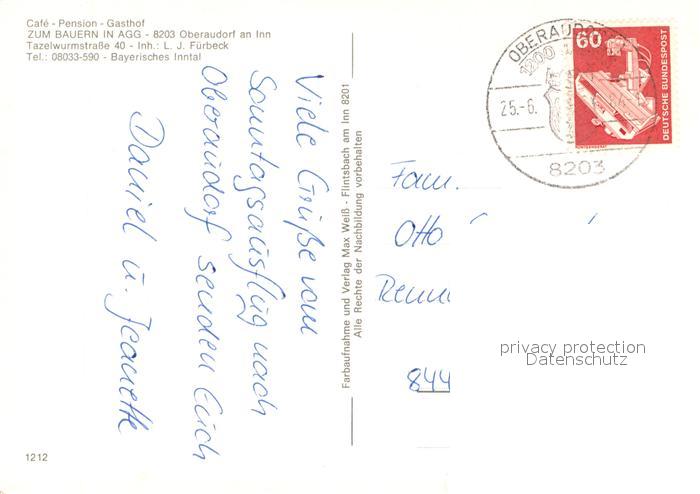 Café - Pension - Gasthof
ZUM BAUERN IN AGG - 8203 Oberaudorf an Inn
Tazelwurmstraße 40 - Inh.: L. J. Fürbeck
Tel.: 08033-590 - Bayerisches Inntal
Viele Grüße vom
Sonntagsausflug nach
Oberaudorf senden Euch
Daniel u. Jeanette
1212
Farbaufnahme und Verlag Max Weiß - Flintsbach am Inn 8201
Alle Rechte der Nachbildung vorbehalten
OBERAUDORF
1200
25.-6.
8203
60
DEUTSCHE BUNDESPOST
Fam.
Otto
844
privacy protection
Datenschutz